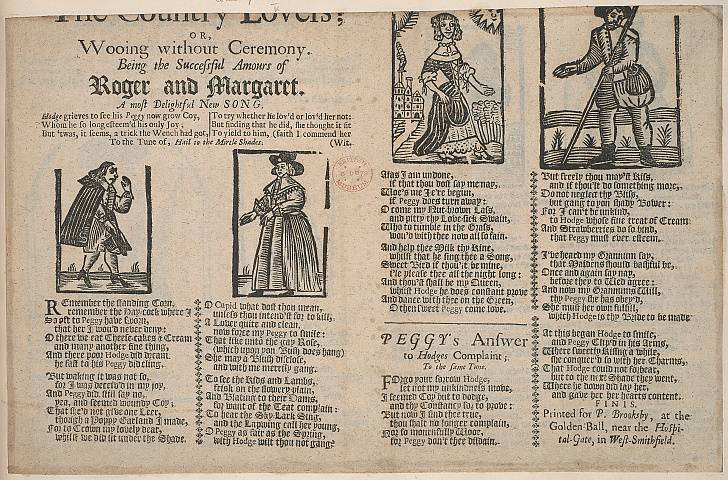 The Country Lovers;
OR,
Wooing without Ceremony.
Being the Successful Amours of
Roger and Margaret.
A most Delightful New SONG.
Hodge grieves to see his Peggy now grow Coy,
Whom he so long esteem'd his only Joy;
But 'twas, it seems, a trick the Wench had got,
To try whether he lov'd or lov'd her not:
But finding that he did, she thought it fit
To yield to him, (faith I commend her
(Wit.
To the Tune of, Hail to the Mirtle Shades.
REmember the standing Corn,
remember the Day-cock where I
So oft to Peggy have sworn,
that her I wou'd never deny:
O there we eat Cheese-cakes & Cream
and many another fine thing,
And there poor Hodge did dream
he fast to his Peggy did cling.
But waking it was not so,
for I was deceiv'd in my joy,
And Peggy did still say no,
yea, and seemed mondy Coy;
That she'd not give one Leer,
though a Poppy Garland I made,
For to Crown my lovely dear,
whilst we did sit under the Shade.
O Cupid what dost thou mean,
unless thou intend'st for to kill,
A Lover quite and clean,
now force my Peggy to smile:
That like unto the gay Rose,
(which upon yon Bush does hang)
She may a Blush disclose,
and with me merrily gang.
To see the Kids and Lambs,
frisk on the flowery plain,
And Blating to their Dams,
for want of the Teat complain:
To hear the Sky-Lark Sing,
and the Lapwing call her young,
O Peggy as fair as the Spring,
with Hodge wilt thou not gang?
Alas I am undone,
if that thou dost say me nay,
Woe's me I e're begun,
if Peggy does turn away:
O come my Nut-brown Lass,
and pitty thy Love-sick Swain,
Who to tumble in the Grass,
wou'd with thee now all so fain.
And help thee Milk thy Kine,
whilst that he sing thee a Song,
Sweet Bird if thou't be mine,
I'le please thee all the night long:
And thou'st shall be my Queen,
whilst Hodge he does constant prove
And dance with thee on the Green,
O then sweet Peggy come love.
PEGGY's Answer
to Hodges Complaint;
To the same Tune.
FOrgo your sorrow Hodge,
let not my unkindness move,
I seemed Coy but to dodge,
and thy Constancy for to prove:
But now I find thee true,
thou shalt no longer complain,
Nor so mournfully Wooe,
for Peggy don't thee disdain.
But freely thou may'st Kiss,
and if thou'lt do something more,
Do not neglect thy Bliss,
but gang to yon shady Bower:
For I can't be unkind,
to Hodge whose fine treat of Cream
And Strawberries do so bind,
that Peggy must ever esteem.
I've heard my Grannum say,
that Maidens should bashful be,
Once and again say nay,
before they to Wed agree:
And now my Grannums Will,
thy Peggy she has obey'd,
She must her own fulfil,
which Hodge is thy Bride to be made
At this began Hodge to smile,
and Peggy Clip'd in his Arms,
Where sweetly kissing a while,
he conquer'd so with her Charms,
That Hodge could not forbear,
but to the next Shade they went,
Where he down did lay her,
and gave her her hearts content.
FINIS.
Printed for P. Brooksby, at the
Golden-Ball, near the Hospi-
tal-Gate, in West-Smithfield.